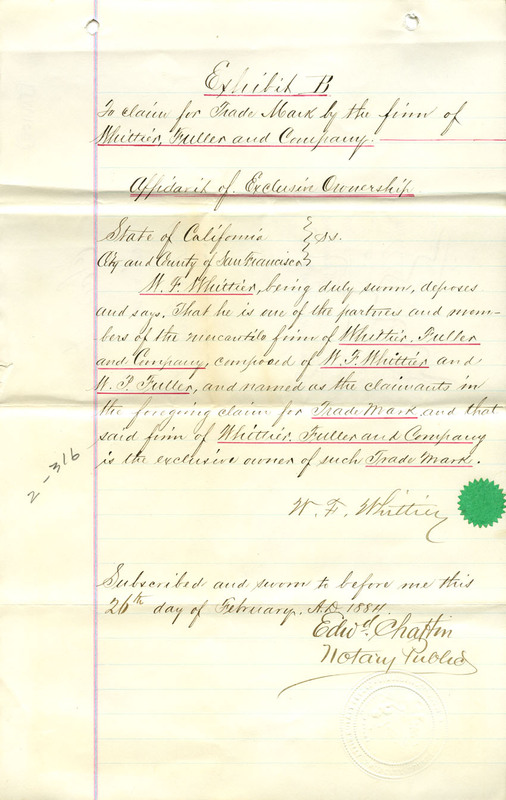 Exhibit B
To claim for Trade Mark by the firm of
Whittier, Fuller and Company.
Affidavit of Exclusive Ownership
State of California } ss.
City and County of San Francisco }
W. F. Whittier, being duly sworn, deposes
and says. That he is one of the partners and mem-
bers of the mercantile firm of Whittier, Fuller
and Company, composed of W. F. Whittier and
W. P. Fuller, and named as the claimants in
the foregoing claim for Trade Mark and that
said firm of Whittier, Fuller and Company
is the exclusive owner of such Trade Mark.
2-316
W. F. Whittier
Subscribed and sworn to before me this
26th day of February, A.D. 1884.
Edwd. Chattin
Notary Public